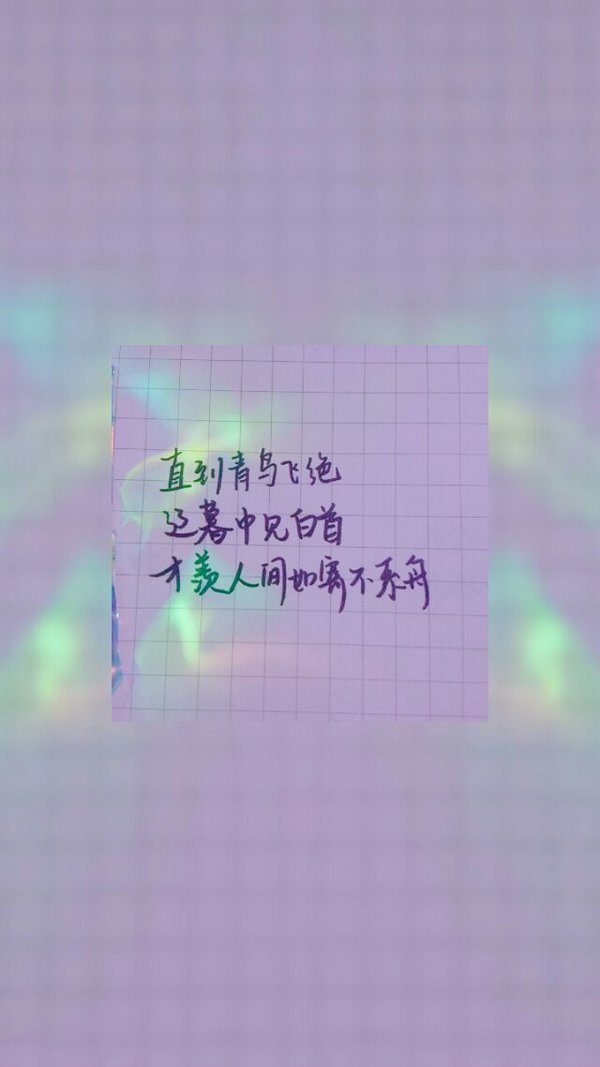 直到青鸟飞绝
迟暮中见白首
才羡人间如寄不系舟